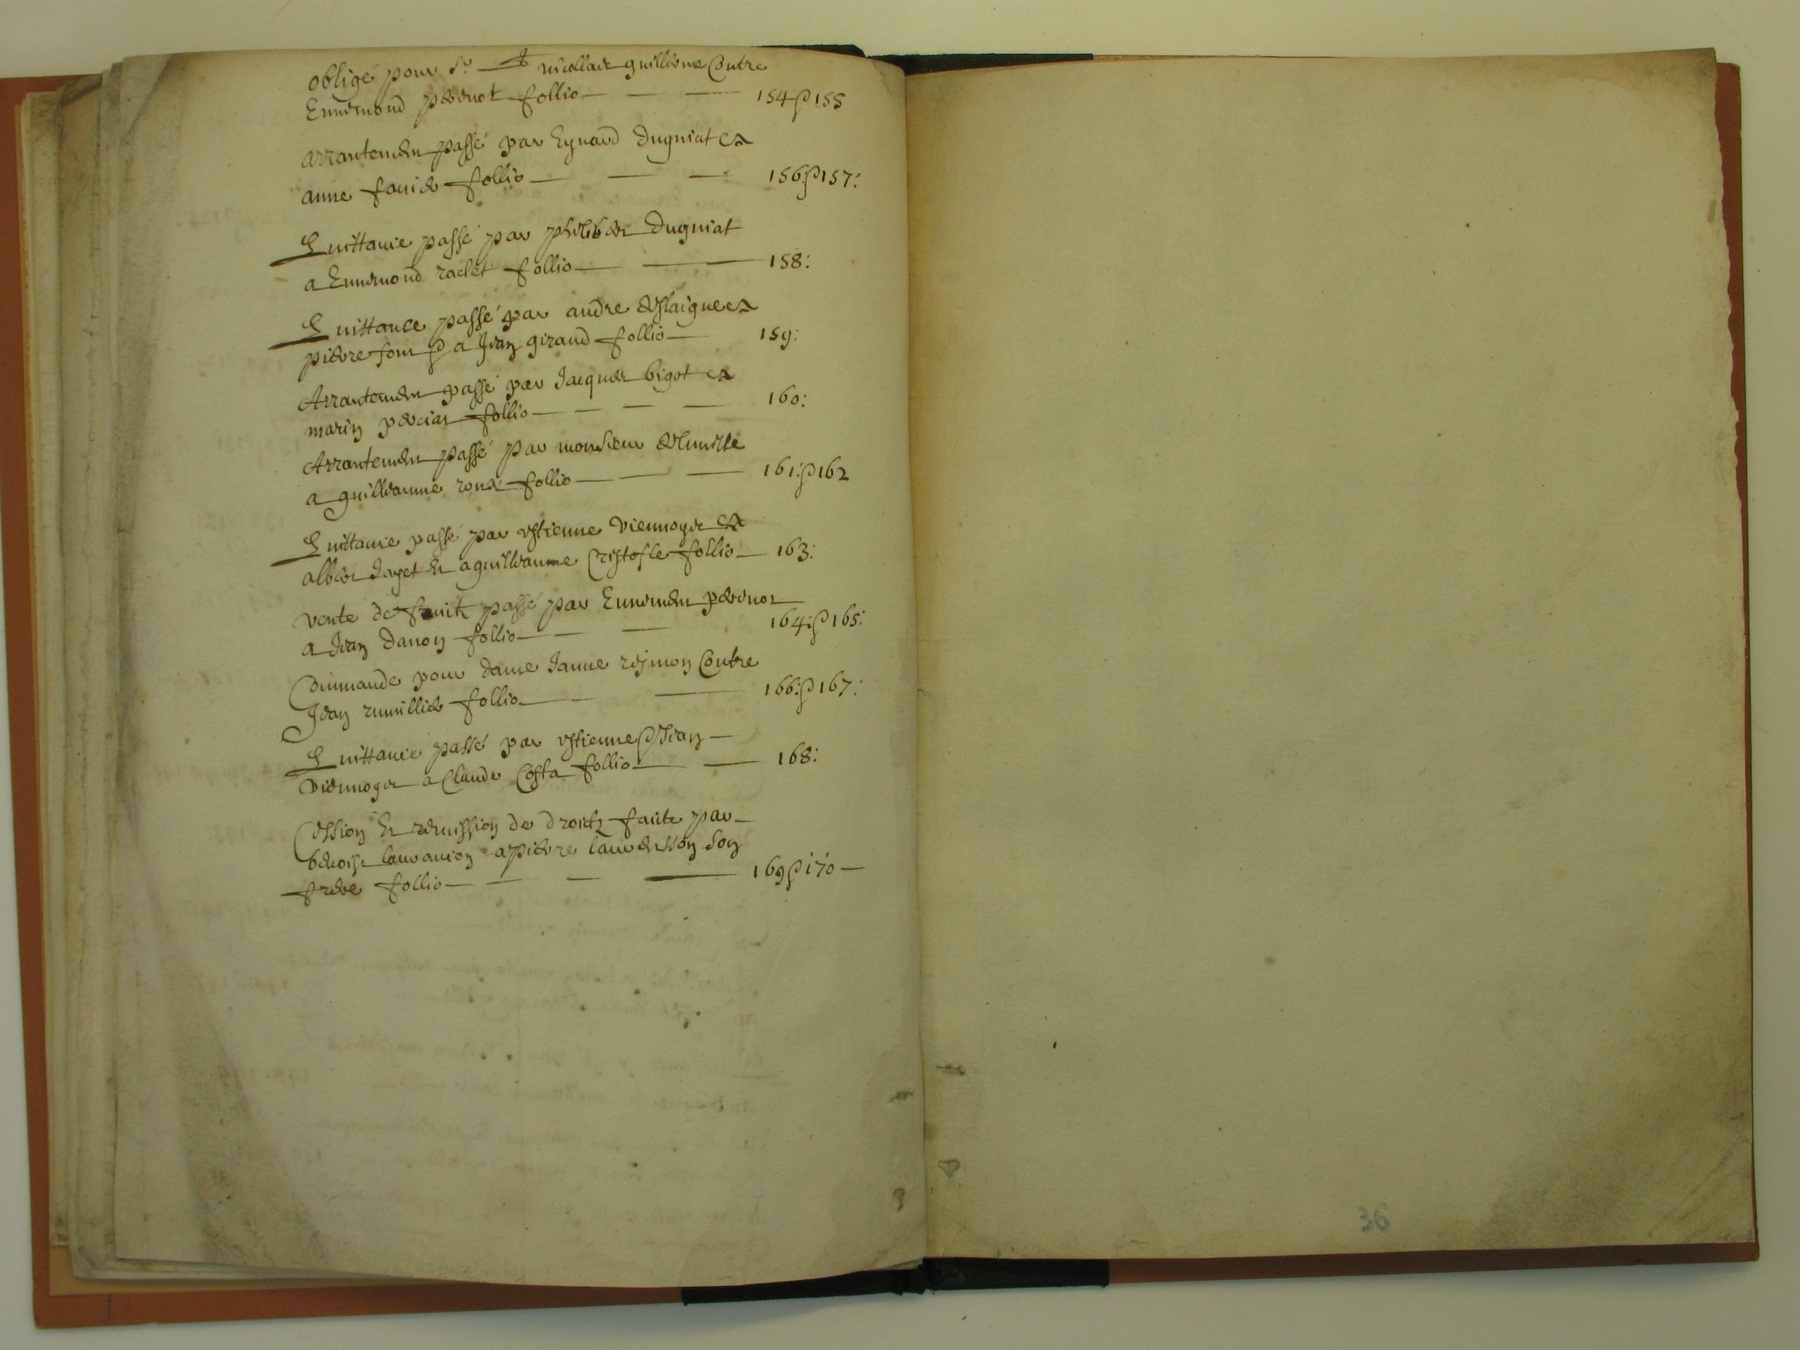 obligé pour Sr nicollas guilleme Contre
Ennemond pervnot follio 154 & 155
arrantemen passé par Eynard dugniat et
anne follio 156 & 157:
Quittance passé par philiber dugniat
a Ennemond raclet follio 158:
Quittance passé par andre et
pierre & a Jean giraud follio 159:
Arrantemen passé par Jacques bigot et
marin follio 160:
Arrantemen passé par monsieur
a guilleaume roux follio 161: & 162
Quittance passé par estienne viennoys et
alber Jayet et a guilleaume Cristofle follio 163:
vente de fruitz passé par Ennemon
a Jean danon follio 164: & 165:
Commande pour dame Janne reymon Contre
Jean rumillie follio 166: & 167:
Quittance passé par estienne & Jean
viennoys a Claude Costa follio 168:
Cession et remission de droitz faite par
benoist a pierre son
frere follio 169 & 170
36